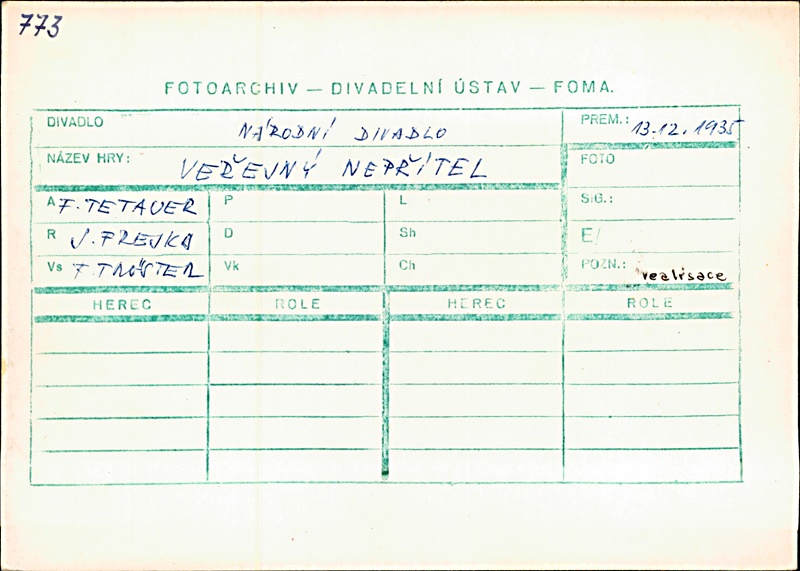 773
FOTOARCHIV — DIVADELNÍ ÚSTAV — FOMA.
DIVADLO NÁRODNÍ DIVADLO PREM.: 13.12.1935
NÁZEV HRY: VEŘEJNÝ NEPŘÍTEL FOTO
A F. TETAUER P L SIG.:
R J. FREJKA D Sh E/
Vs F. TRÖSTER Vk Ch POZN.: realisace
HEREC ROLE HEREC ROLE